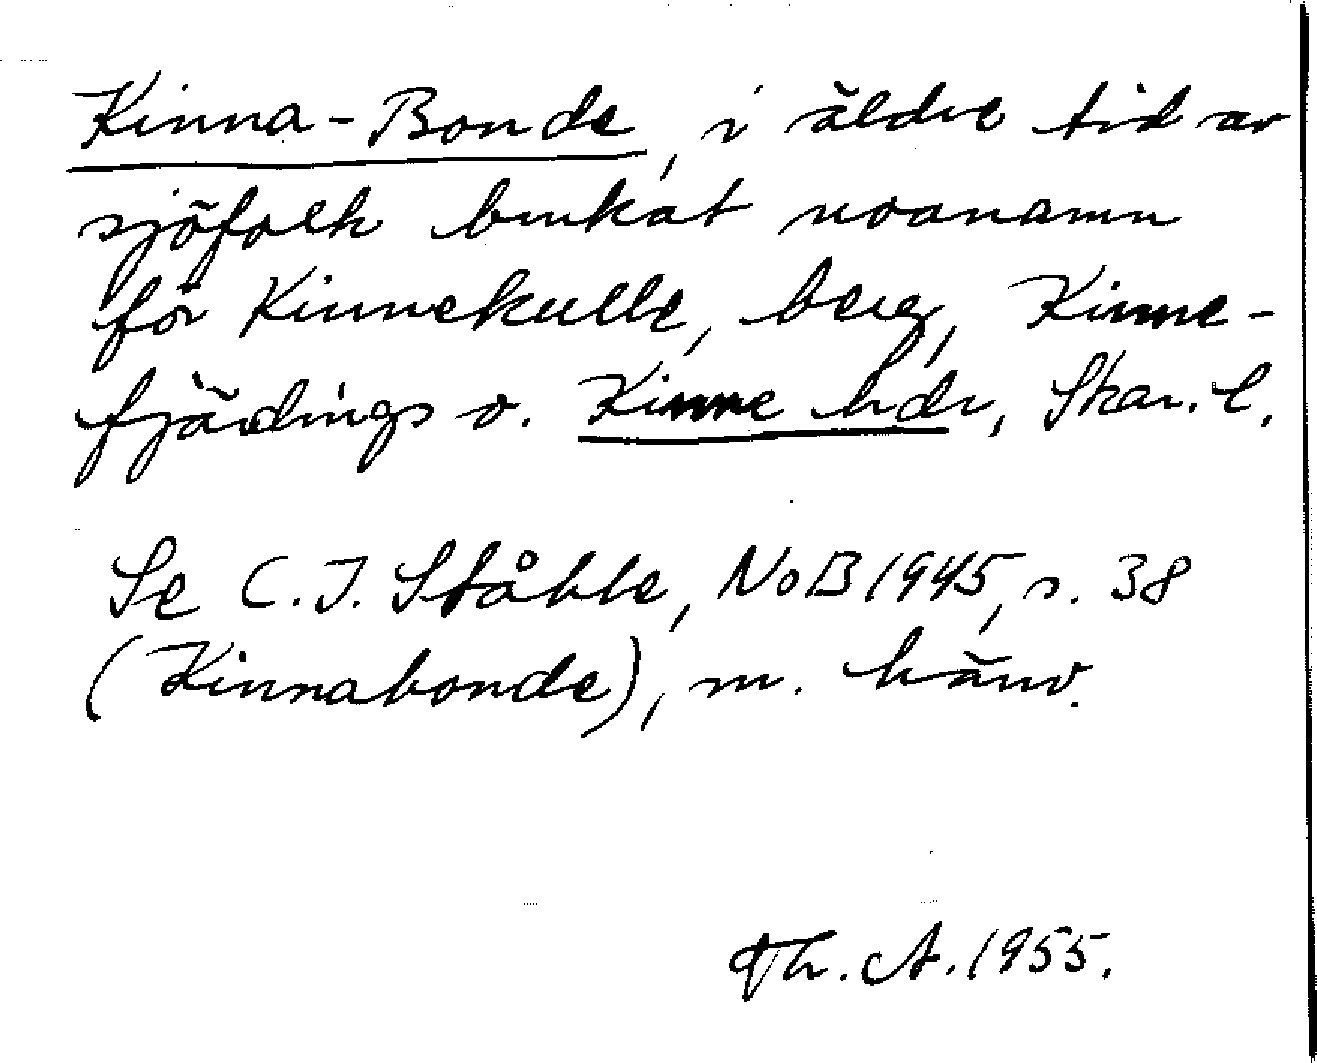 Kinna-Bonde, i äldre tid av
sjöfolk brukat noanamn
för Kinnekulle, berg, Kinne-
fjärdings o. Kinne hdr, Skar. l.
Se C. I. Ståhle, NoB 1945, s. 38
(Kinnabonde), m. hänv.
Th. A. 1955.